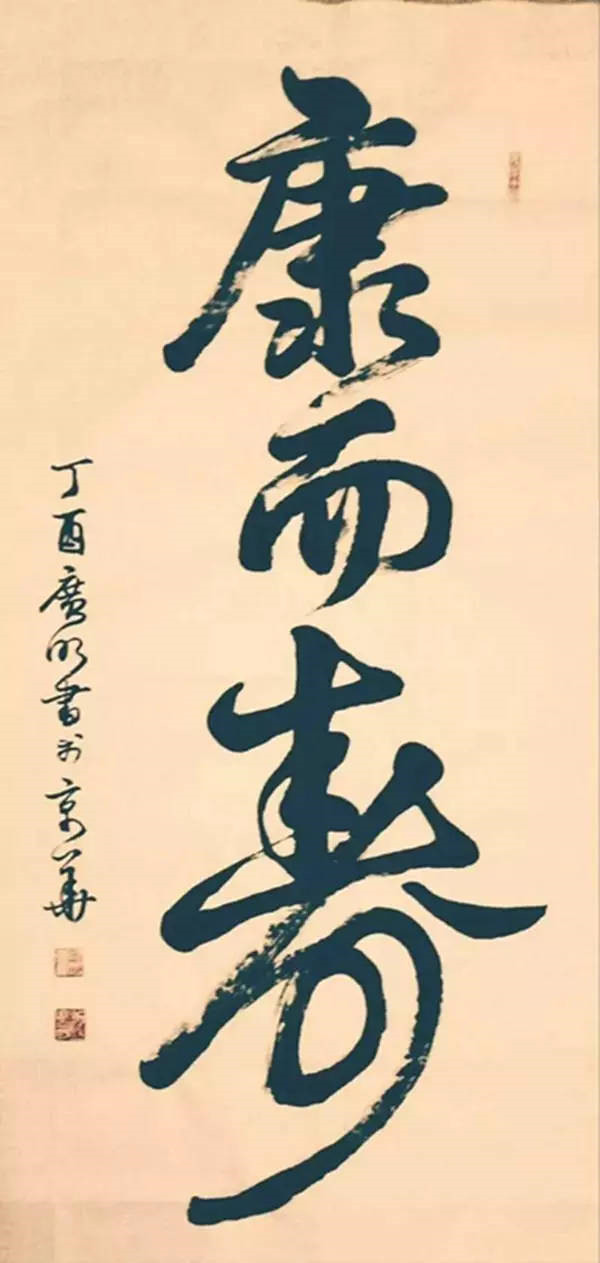 康而壽
丁酉廣明書於京華